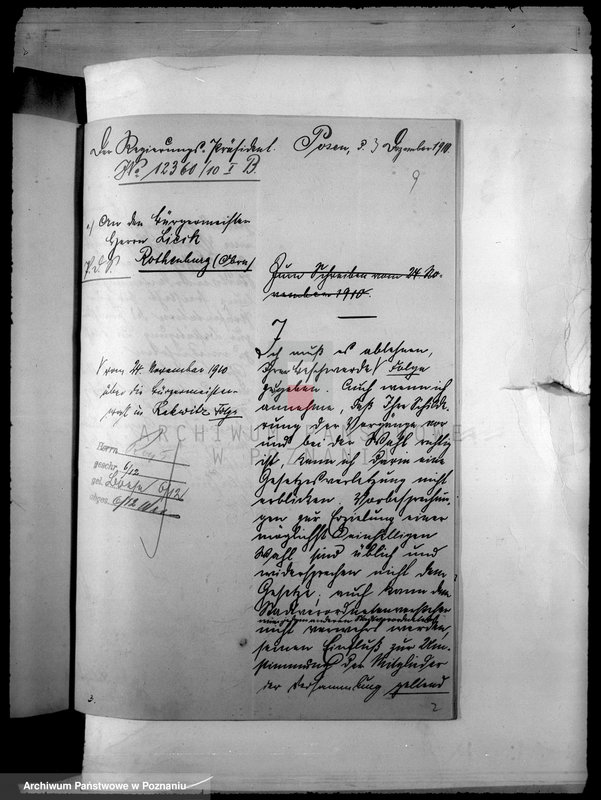 Der Regierungs-Präsident.
Posen, d. 3 Dezember 1910.
No 12360/10 I B.
9
a) An den Bürgermeister
Herrn Licik
Rothenburg (Obra)
Zum Schreiben vom 24 No-
vember 1910.
Ich muß es ablehnen,
Ihrer Beschwerde Folge
zu geben. Auch wenn ich
annehme, daß Ihre Schilde-
rung der Vorgänge vor
und bei der Wahl richtig
ist, kann ich darin eine
Gesetzesverletzung nicht
erblicken. Vorbesprechun-
gen zur Erzielung einer
möglichst einhelligen
Wahl sind üblich und
widersprechen nicht dem
Gesetze; auch kann dem
Stadtverordnetenvorsteher
nicht verwehrt werden,
seinen Einfluß zur Um-
stimmung der Mitglieder
der Versammlung geltend
vom 24 November 1910
über die Bürgermeister-
wahl in Rakwitz
Herrn
geschr. 6/12
gel. 6/12
abges. 6/12
3.
2
ARCHIWUM PAŃSTWOWE
W POZNANIU
Archiwum Państwowe w Poznaniu